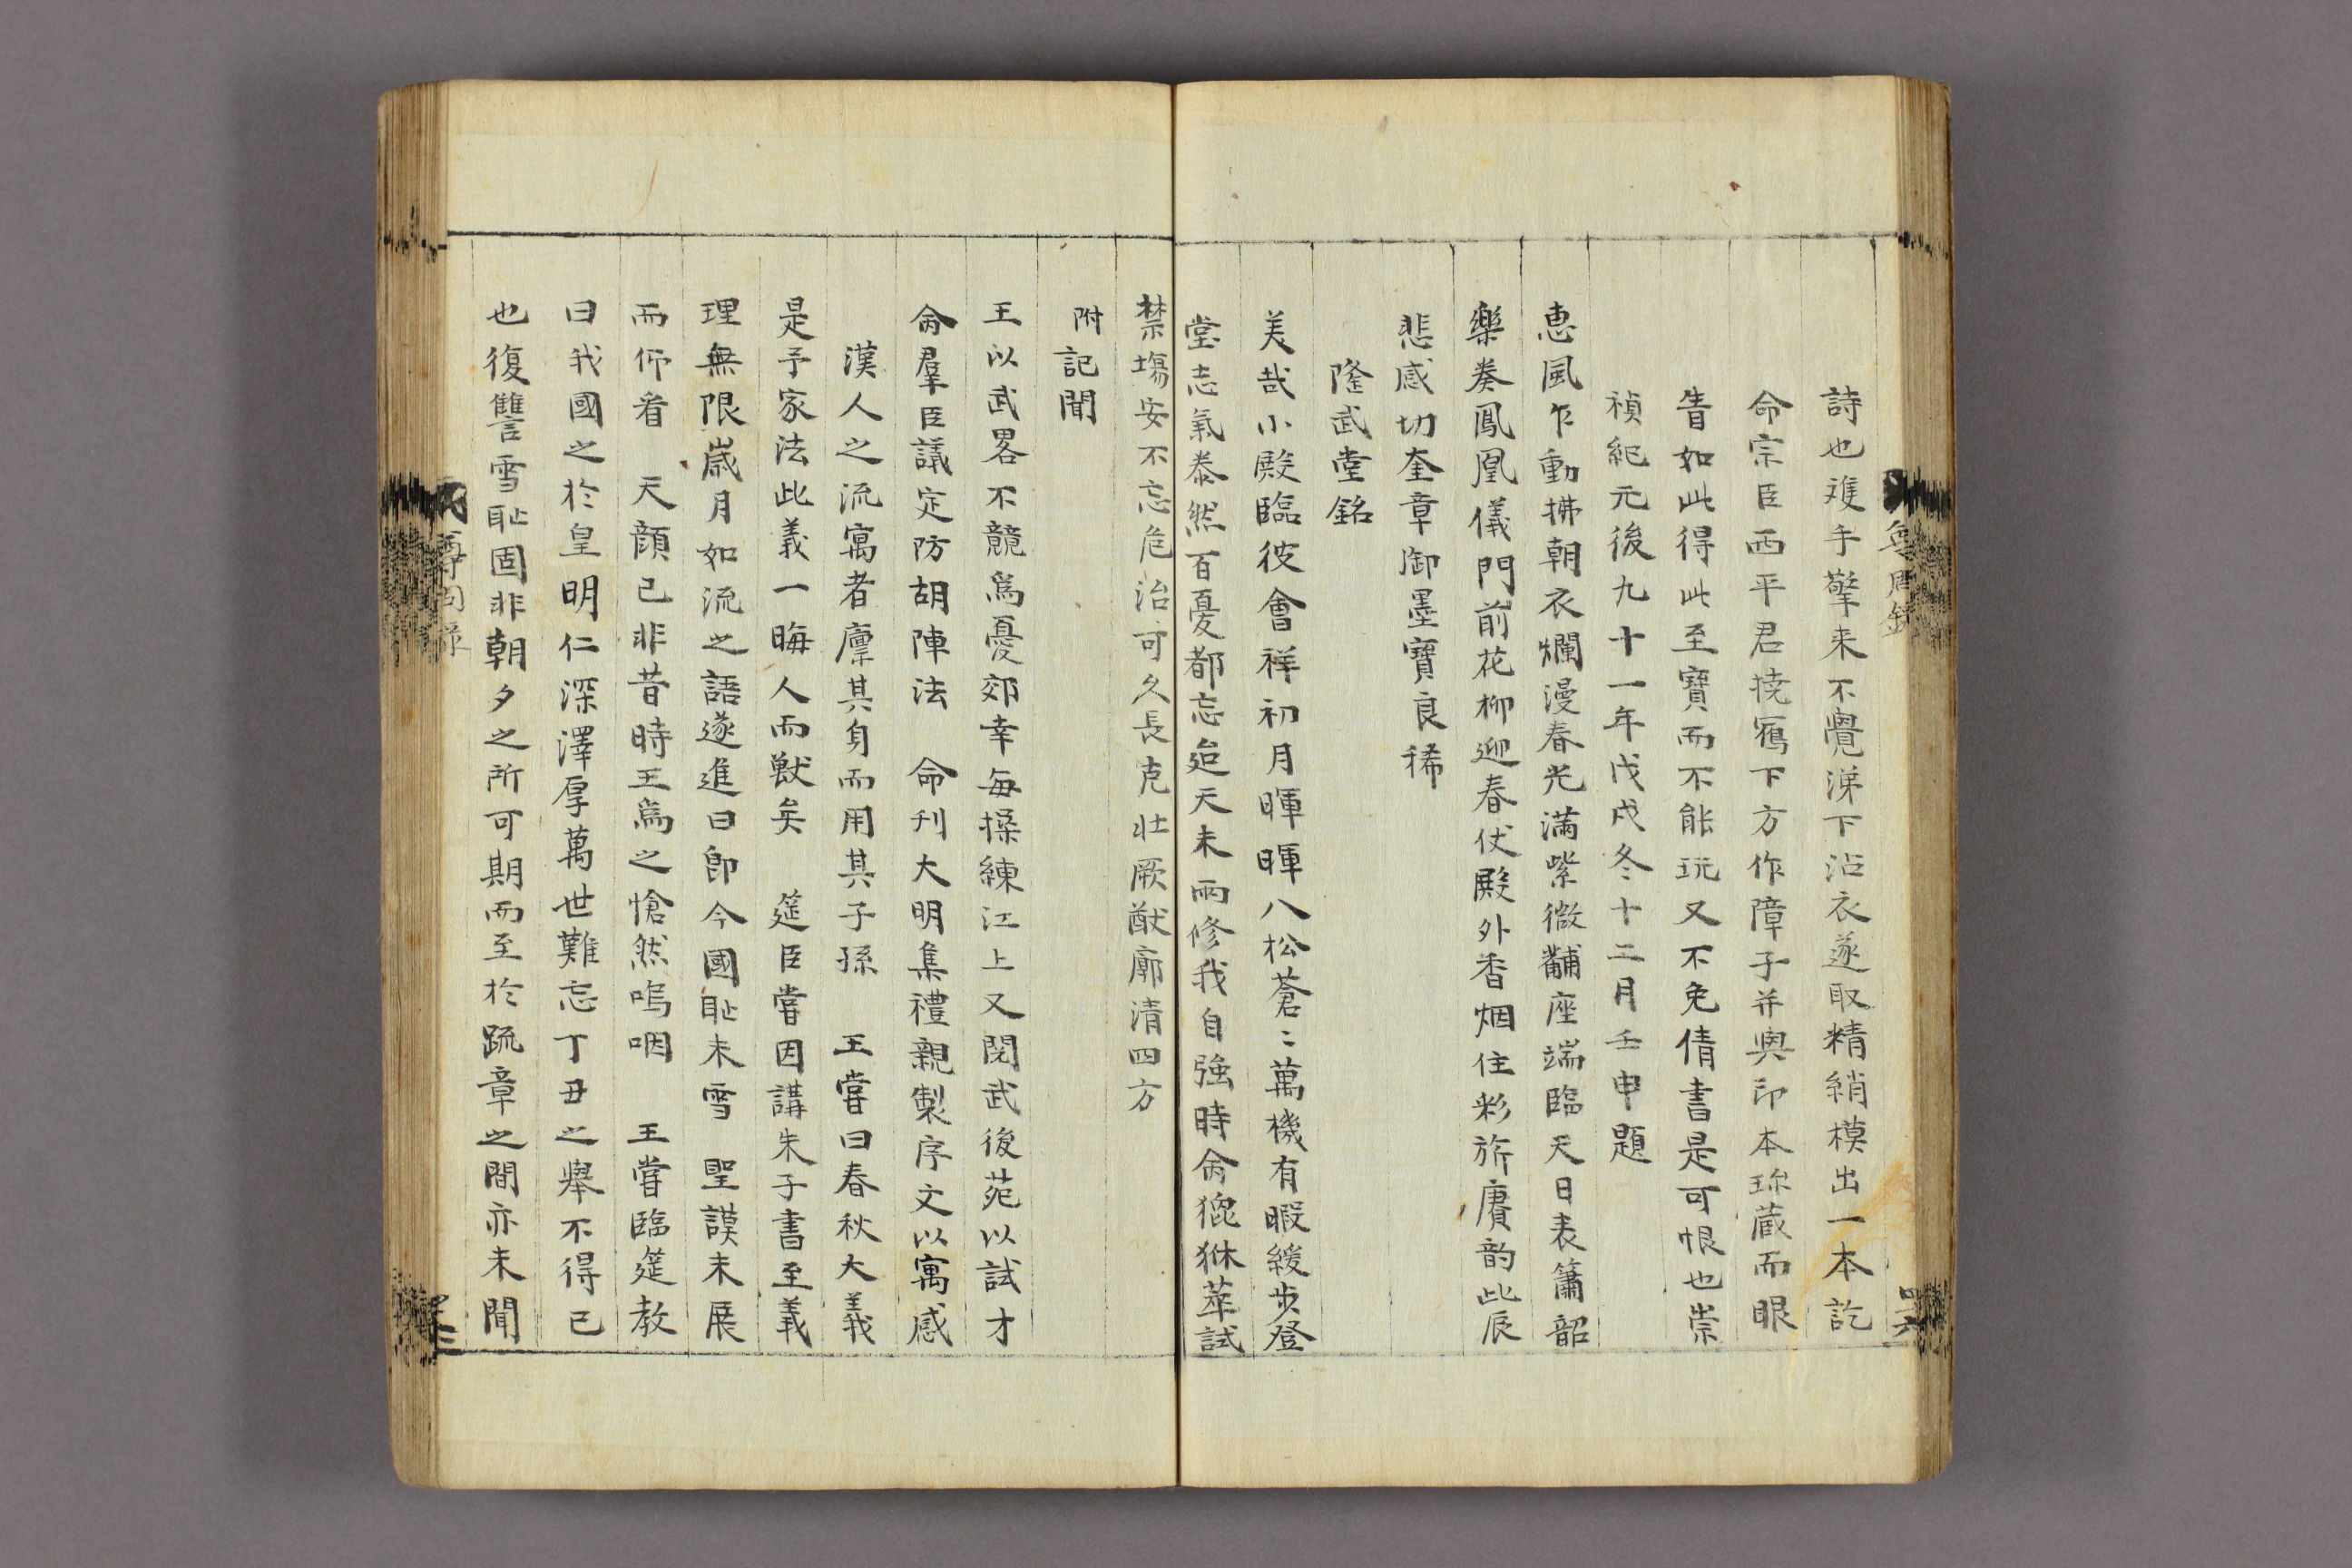 尊周錄
詩也雙手擎来不覺涕下沾衣遂取精綃模出一本訖
命宗臣西平君撓寫下方作障子并與印本珎蔵而眼
眚如此得此至寶而不能玩又不免倩書是可恨也崇
禎紀元後九十一年戊戌冬十二月壬申題
惠風乍動拂朝衣爛漫春光滿紫微黼座端臨天日表簫韶
樂奏鳳凰儀門前花柳迎春仗殿外香烟住彩旂賡韵此辰
悲感切奎章御墨寶良稀
隆武堂銘
美哉小殿臨彼會祥初月暉暉八松蒼〻萬機有暇緩步登
堂志氣泰然百憂都忘迨天未雨修我自強時命貔貅萃試
禁場安不忘危治可久長克壮厥猷廓清四方
附記聞
王以武畧不競為憂郊幸每操練江上又閱武後苑以試才
命羣臣議定防胡陣法 命刋大明集禮親製序文以寓感
漢人之流寓者廩其身而用其子孫 王嘗曰春秋大義
是予家法此義一晦人而獸矣 筵臣嘗因講朱子書至義
理無限歲月如流之語遂進曰卽今國耻未雪 聖謨未展
而仰看 天顔已非昔時王為之愴然嗚咽 王嘗臨筵教
曰我國之於皇明仁深澤厚萬世難忘丁丑之舉不得已
也復讐雪耻固非朝夕之所可期而至於疏章之間亦未聞
尊周錄